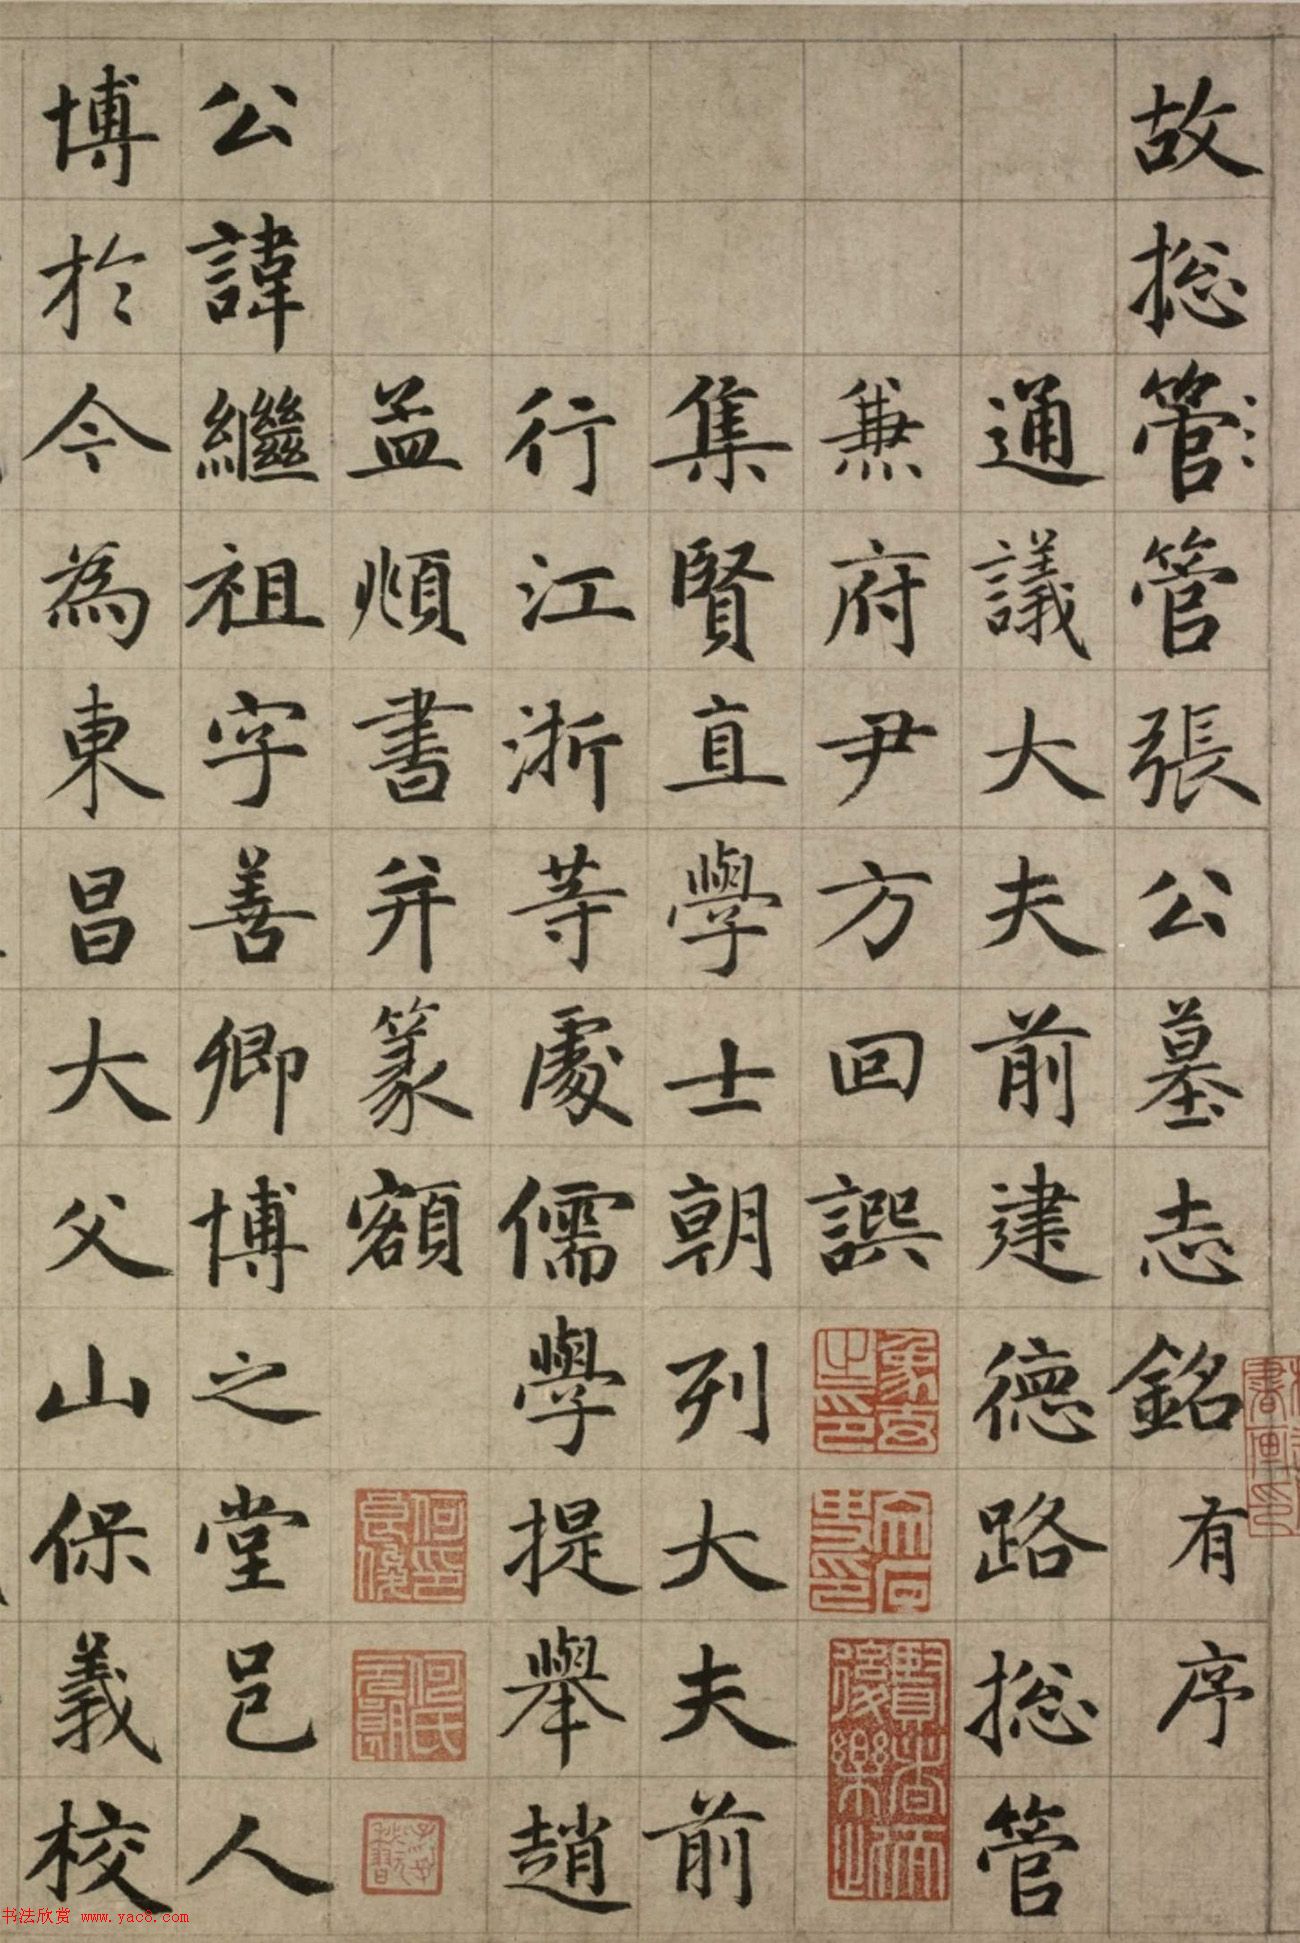 故揔管管張公墓志銘有序
通議大夫前建德路揔管
兼府尹方回譔
集賢直學士朝列大夫前
行江浙等處儒學提舉趙
孟頫書并篆額
公諱繼祖字善卿博之堂邑人
博於今為東昌大父山保義校
何氏元朗
书法欣赏 www.yac8.com